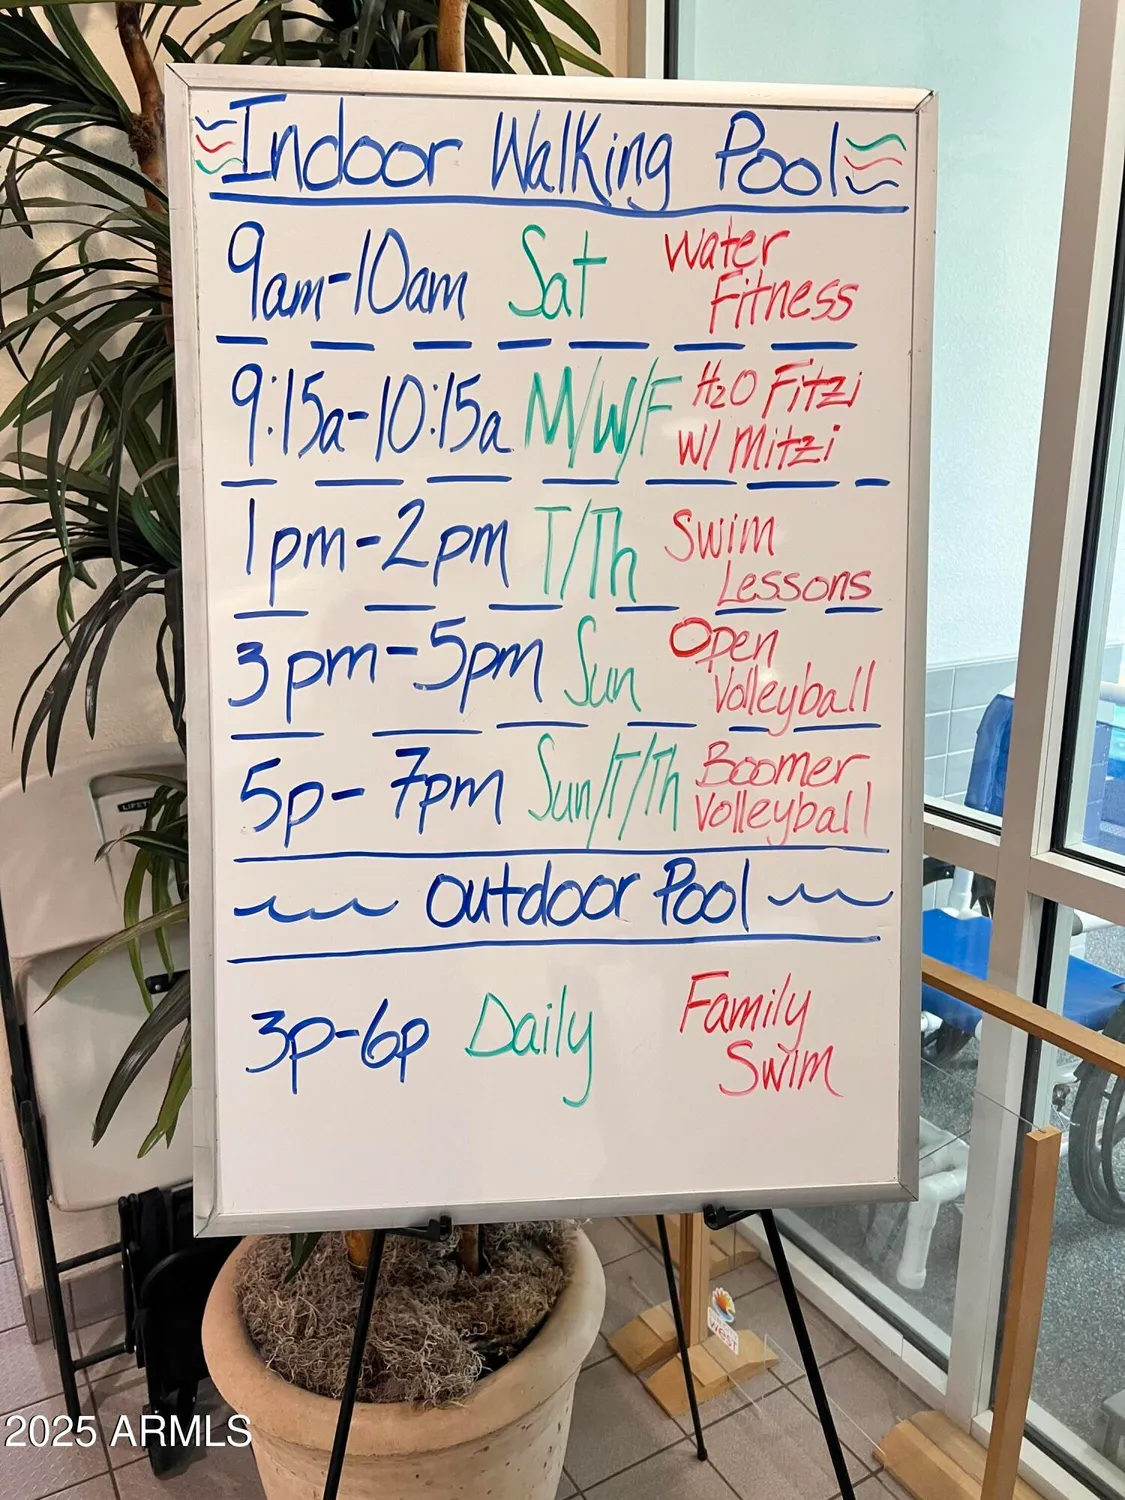 Indoor Walking Pool
9am-10am Sat Water Fitness
9:15a-10:15a M/W/F H2O Fitzi w/ Mitzi
1pm-2pm T/Th Swim Lessons
3pm-5pm Sun Open Volleyball
5p-7pm Sun/T/Th Boomer Volleyball
Outdoor Pool
3p-6p Daily Family Swim
LIFET
WEST
2025 ARMLS